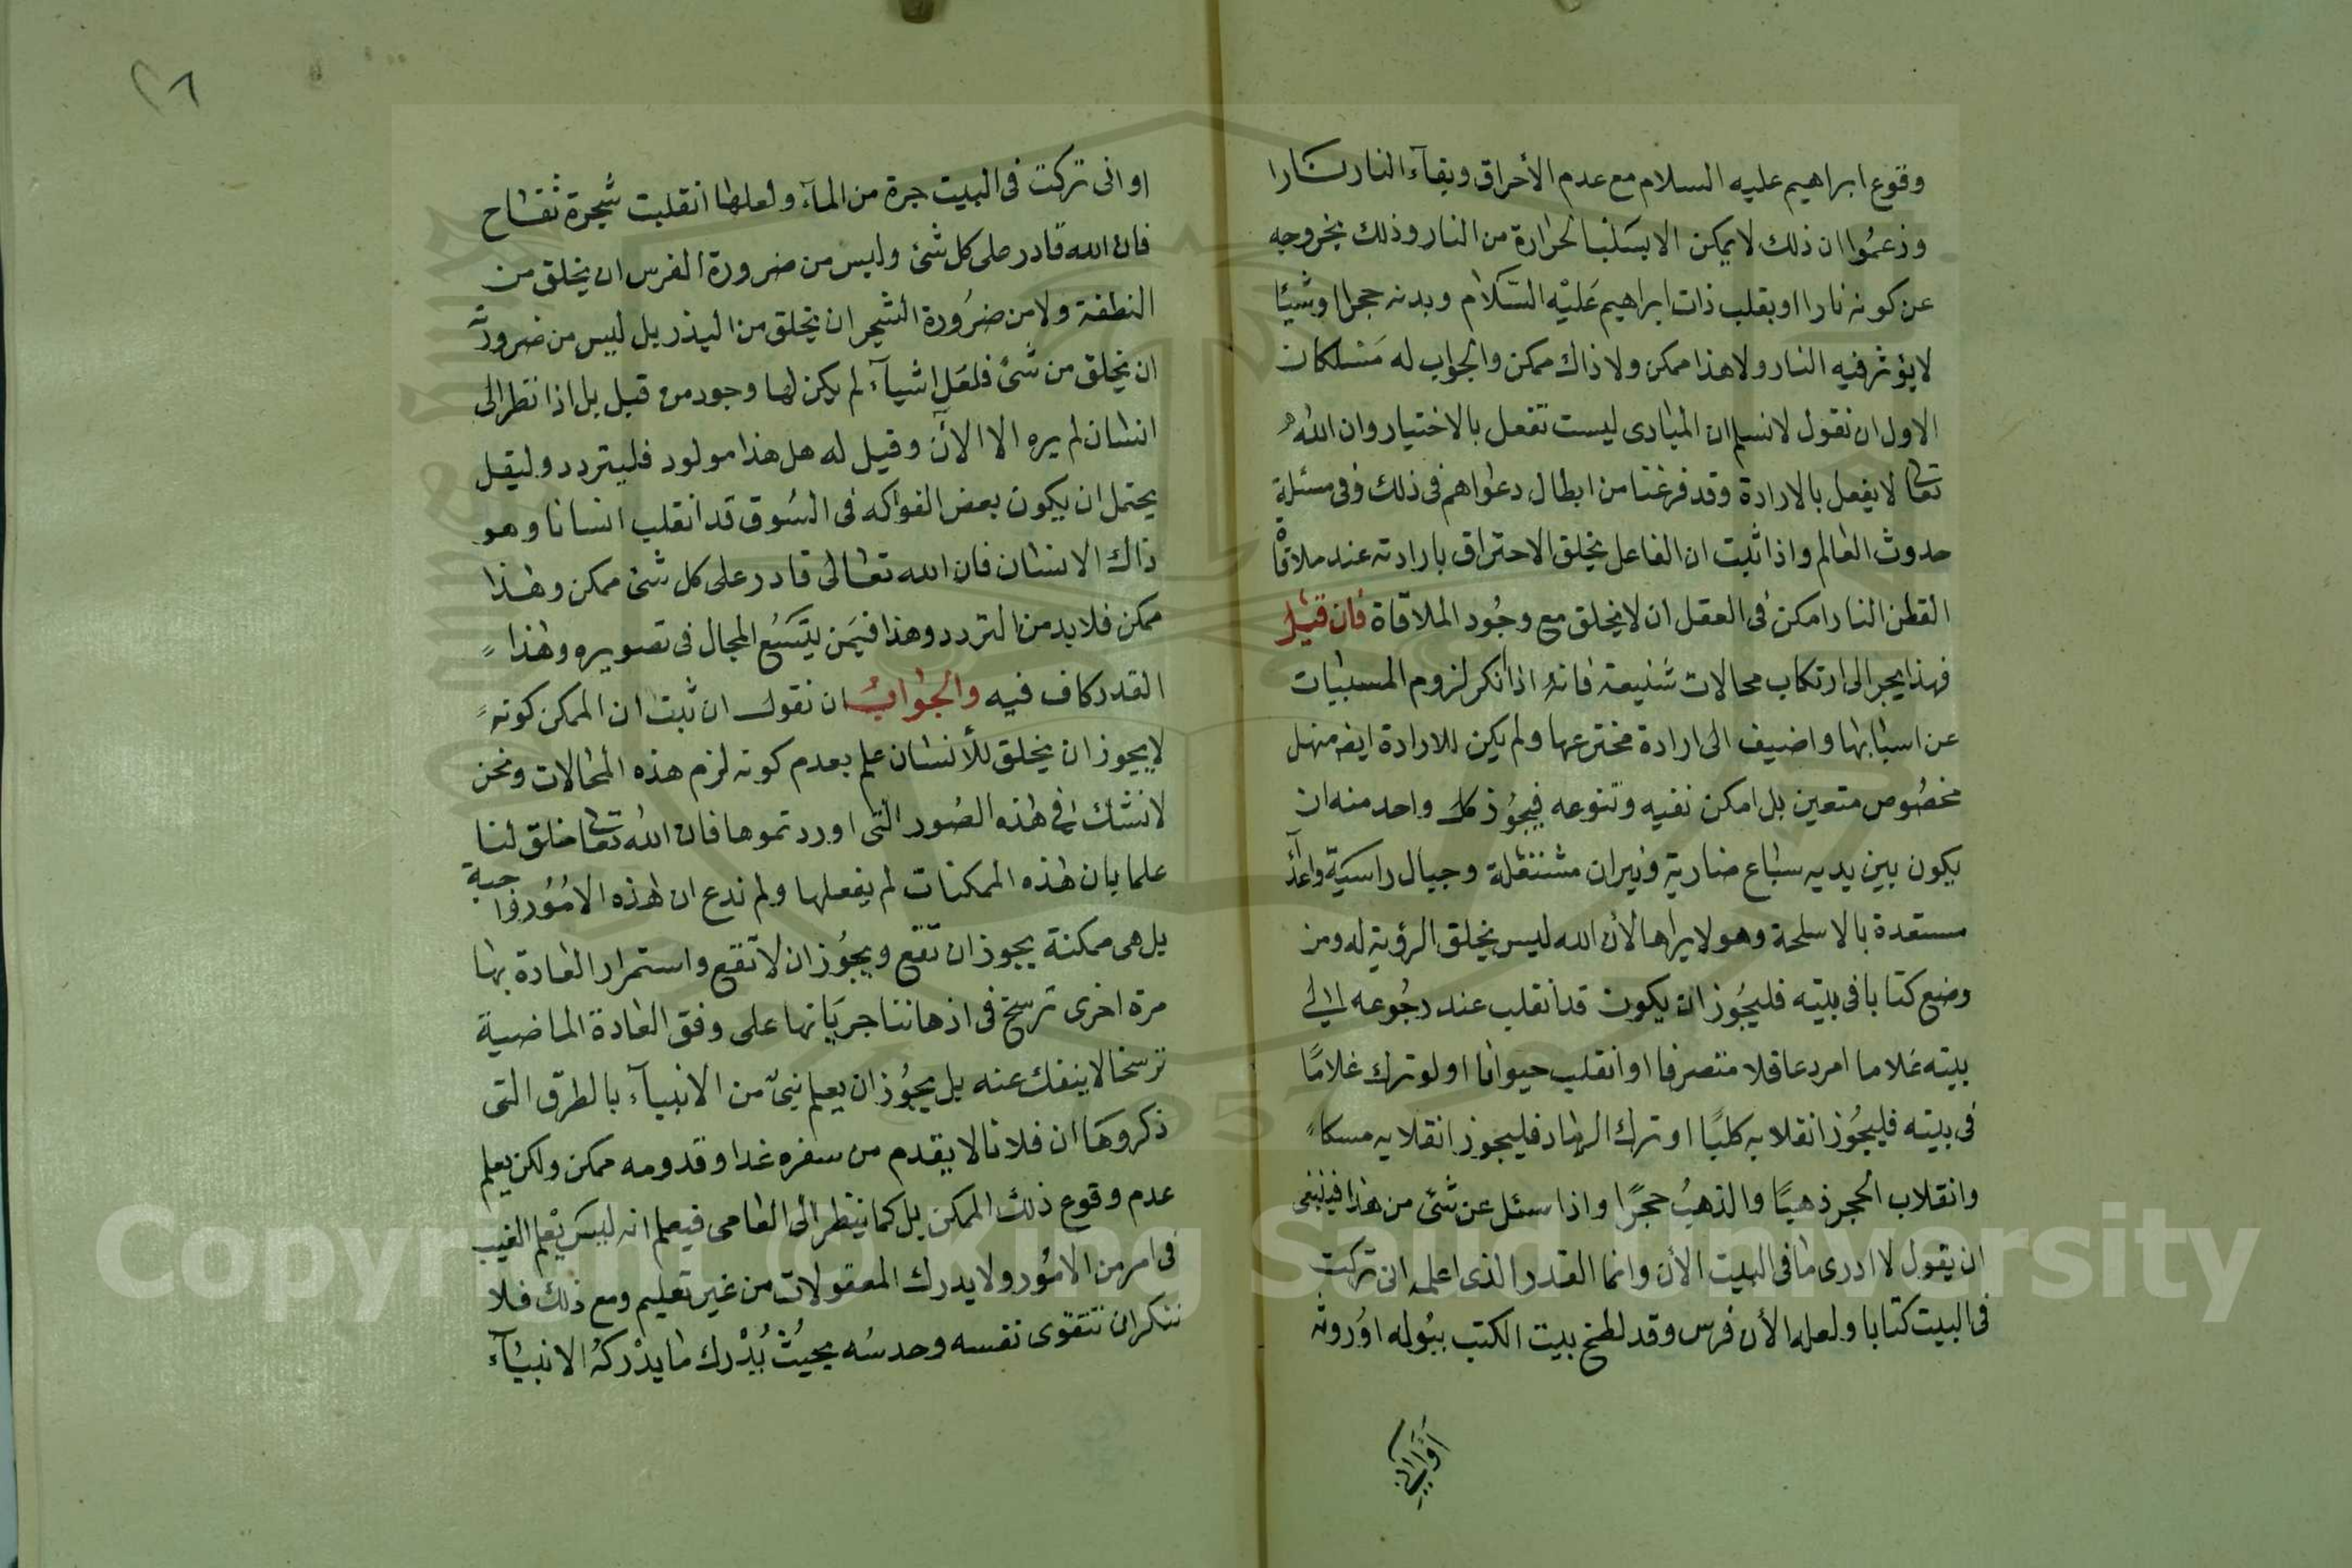 وقوع ابراهيم عليه السلام مع عدم الأحراق وبقآء النار نارا
وزعموا ان ذلك لا يمكن الا بسلب الحرارة من النار وذلك يخروجه
عن كونه نارا او بقلب ذات ابراهيم عليه السلام وبدنه حجرا او شيئا
لا يؤثر فيه النار ولا هذا ممكن ولا ذاك ممكن والجواب له مسلكان
الاول ان نقول لا نسلم ان المبادى ليست تفعل بالاختيار وان الله
تعا لا يفعل بالارادة وقد فرغنا من ابطال دعواهم فى ذلك وفى مسئلة
حدوث العالم واذا ثبت ان الفاعل يخلق الاحتراق بارادته عند ملاقاة
القطن النار امكن فى العقل ان لا يخلق مع وجود الملاقاة فان قيل
فهذا يجر الى ارتكاب محالات شنيعة فانه اذا انكر لزوم المسببات
عن اسبابها واضيف الى ارادة مخترعها ولم يكن للارادة ايضه منهل
مخصوص متعين بل امكن نفيه وتنوعه فيجوز كل واحد منه ان
يكون بين يديه سباع ضارية ونيران مشتعلة وجبال راسية واعدآ
مستعدة بالاسلحة وهو لا يراها لأن الله ليس يخلق الرؤية له ومن
وضع كتابا فى بيته فليجوز ان يكون قد انقلب عند رجوعه الى
بيته غلاما امرد عاقلا متصرفا او انقلب حيوانا او لو ترك غلاما
فى بيته فليجوز انقلابه كلبا او ترك الرماد فليجوز انقلابه مسكا
وانقلاب الحجر ذهبا والذهب حجرا واذا سئل عن شئ من هذا فينبغى
ان يقول لا ادرى ما فى البيت الأن وانما القدر الذى اعلمه انى تركت
فى البيت كتابا ولعله الأن فرس وقد لطخ بيت الكتب ببوله او روثه
او انى
او انى تركت فى البيت جرة من المآء ولعلها انقلبت شجرة تفاح
فان الله قادر على كل شئ وليس من ضرورة الفرس ان يخلق من
النطفة ولا من ضرورة الشجر ان يخلق من البذر بل ليس من ضرورته
ان يخلق من شئ فلعل اشيآء لم يكن لها وجود من قبل بل اذا نظر الى
انسان لم يره الا الآن وقيل له هل هذا مولود فليتردد وليقل
يحتمل ان يكون بعض الفواكه فى السوق قد انقلب انسانا وهو
ذاك الانسان فان الله تعالى قادر على كل شئ ممكن وهذا
ممكن فلا بد من التردد وهذا فيمن يتسع المجال فى تصويره وهذا
القدر كاف فيه والجواب ان نقول ان ثبت ان الممكن كونه
لا يجوز ان يخلق للأنسان علم بعدم كونه لزم هذه المحالات ونحن
لا نشك فى هذه الصور التى اوردتموها فان الله تعا خلق لنا
علما بان هذه الممكنات لم يفعلها ولم ندع ان هذه الامور واجبة
بل هى ممكنة يجوز ان تقع ويجوز ان لا تقع واستمرار العادة بها
مرة اخرى ترسخ فى اذهاننا جريانها على وفق العادة الماضية
ترسخا لا ينفك عنه بل يجوز ان يعلم نبى من الانبيآء بالطرق التى
ذكروها ان فلانا لا يقدم من سفره غدا وقدومه ممكن ولكن يعلم
عدم وقوع ذلك الممكن بل كما ينظر الى العامى فيعلم انه ليس يعلم الغيب
فى امر من الامور ولا يدرك المعقولات من غير تعليم ومع ذلك فلا
ننكر ان تتقوى نفسه وحدسه بحيث يدرك ما يدركه الانبيآء